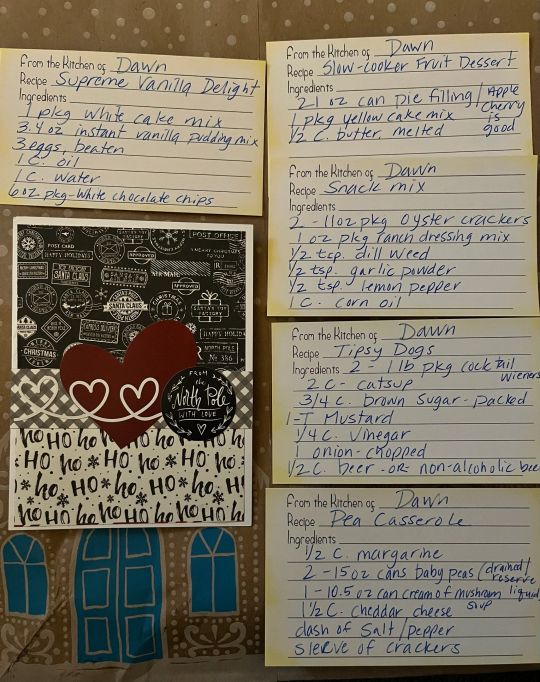 From the Kitchen of Dawn
Recipe Supreme Vanilla Delight
Ingredients
1 pkg white cake mix
3.4 oz instant vanilla pudding mix
3 eggs, beaten
1 C. oil
1 C. water
6 oz pkg-white chocolate chips
From the Kitchen of Dawn
Recipe Slow-cooker Fruit Dessert
Ingredients
21 oz can pie filling/Apple Cherry is good
1 pkg yellow cake mix
1/2 C. butter, melted
From the Kitchen of Dawn
Recipe Snack mix
Ingredients
2 - 11oz pkg oyster crackers
1 oz pkg ranch dressing mix
1/2 tsp. dill weed
1/2 tsp. garlic powder
1/2 tsp lemon pepper
1 C. corn oil
From the Kitchen of Dawn
Recipe Tipsy Dogs
Ingredients 2 - 1 lb pkg cocktail wieners
2 C - catsup
3/4 C. brown sugar - packed
1-T Mustard
1/4 C. vinegar
1 onion-chopped
1/2 C. beer -OR- non-alcoholic beer
From the Kitchen of Dawn
Recipe Pea Casserole
Ingredients
1/2 C. margarine
2 - 15 oz cans baby peas (drained/reserve liquid
1 - 10.5 oz can cream of mushroom soup
1 1/2 C. cheddar cheese
dash of Salt/pepper
sleeve of crackers
POST CARD
POST OFFICE
HAPPY HOLIDAYS
APPROVED
AIR MAIL
SANTA CLAUS
APPROVED
SANTA CLAUS
CHRISTMAS
HAPPY HOLI
NORTH POLE
No 386
FROM
the
North Pole
WITH LOVE
ho HO ho HO ho
HO ho HO ho
ho HO ho HO ho